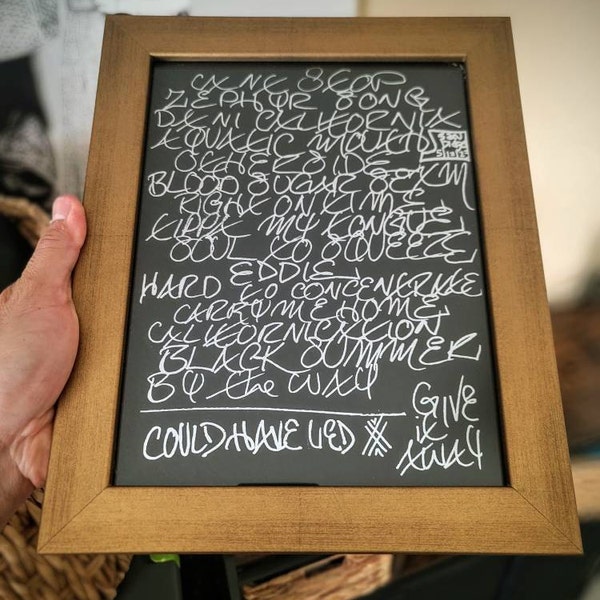 CANT STOP
ZEPHYR SONG
DANI CALIFORNIA
AQUATIC MOUTH
OTHERSIDE
BLOOD SUGAR SEX M
RIGHT ON TIME
TIPPA MY TONGUE
SOUL TO SQUEEZE
EDDIE
HARD TO CONCENTRATE
CARRY ME HOME
CALIFORNICATION
BLACK SUMMER
BY the WAY
COULD HAVE LIED
GIVE
IT
AWAY